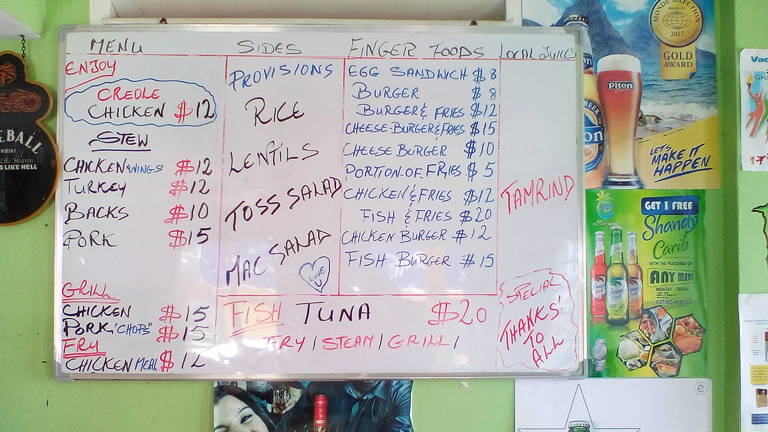 MENU
ENJOY
CREOLE
CHICKEN $12
STEW
CHICKEN WINGS $12
TURKEY $12
BACKS $10
PORK $15
GRILL
CHICKEN $15
PORK "CHOPS" $15
FRY
CHICKEN MEAL $12
SIDES
PROVISIONS
RICE
LENTILS
TOSS SALAD
MAC SALAD
LOVE
U
FINGER FOODS
EGG SANDWICH $8
BURGER $8
BURGER & FRIES $12
CHEESE BURGER & FRIES $15
CHEESE BURGER $10
PORTION OF FRIES $5
CHICKEN & FRIES $12
FISH & FRIES $20
CHICKEN BURGER $12
FISH BURGER $15
FISH TUNA $20
FRY / STEAM / GRILL /
LOCAL JUICES
TAMRIND
SPECIAL
THANKS!
TO
ALL
BALL
WHISKY
LIKE HELL
MONDE SELECTION
2017
GOLD
AWARD
Piton
LET'S
MAKE IT
HAPPEN
GET 1 FREE
Shandy
Carib
WITH THE PURCHASE OF
ANY MEAL
MONDAY - FRIDAY